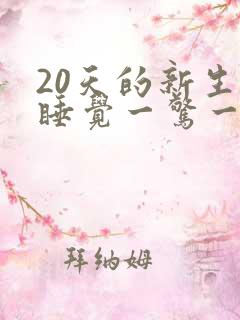 20天的新生
睡覺一驚一
拜纳姆